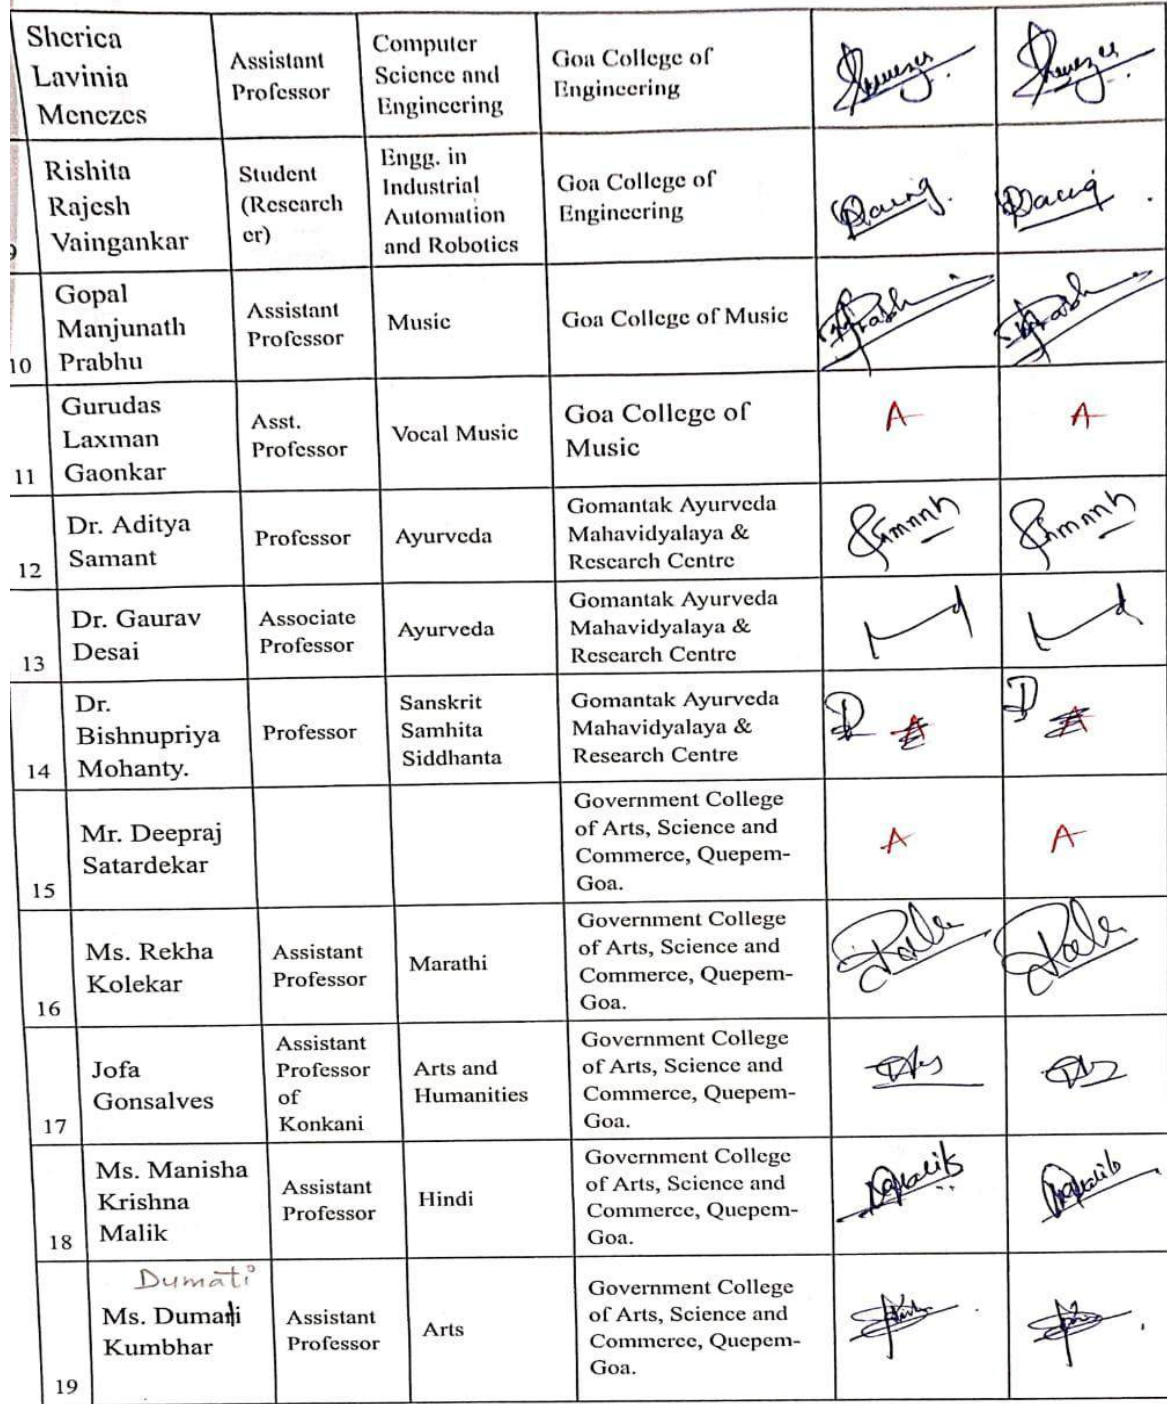 Sherica
Lavinia
Menezes
Assistant
Professor
Computer
Science and
Engineering
Goa College of
Engineering
9
Rishita
Rajesh
Vaingankar
Student
(Research
er)
Engg. in
Industrial
Automation
and Robotics
Goa College of
Engineering
10
Gopal
Manjunath
Prabhu
Assistant
Professor
Music
Goa College of Music
11
Gurudas
Laxman
Gaonkar
Asst.
Professor
Vocal Music
Goa College of
Music
A
A
12
Dr. Aditya
Samant
Professor
Ayurveda
Gomantak Ayurveda
Mahavidyalaya &
Research Centre
13
Dr. Gaurav
Desai
Associate
Professor
Ayurveda
Gomantak Ayurveda
Mahavidyalaya &
Research Centre
14
Dr.
Bishnupriya
Mohanty.
Professor
Sanskrit
Samhita
Siddhanta
Gomantak Ayurveda
Mahavidyalaya &
Research Centre
A
A
15
Mr. Deepraj
Satardekar
Government College
of Arts, Science and
Commerce, Quepem-
Goa.
A
A
16
Ms. Rekha
Kolekar
Assistant
Professor
Marathi
Government College
of Arts, Science and
Commerce, Quepem-
Goa.
17
Jofa
Gonsalves
Assistant
Professor
of
Konkani
Arts and
Humanities
Government College
of Arts, Science and
Commerce, Quepem-
Goa.
18
Ms. Manisha
Krishna
Malik
Assistant
Professor
Hindi
Government College
of Arts, Science and
Commerce, Quepem-
Goa.
19
Dumati
Ms. Dumati
Kumbhar
Assistant
Professor
Arts
Government College
of Arts, Science and
Commerce, Quepem-
Goa.